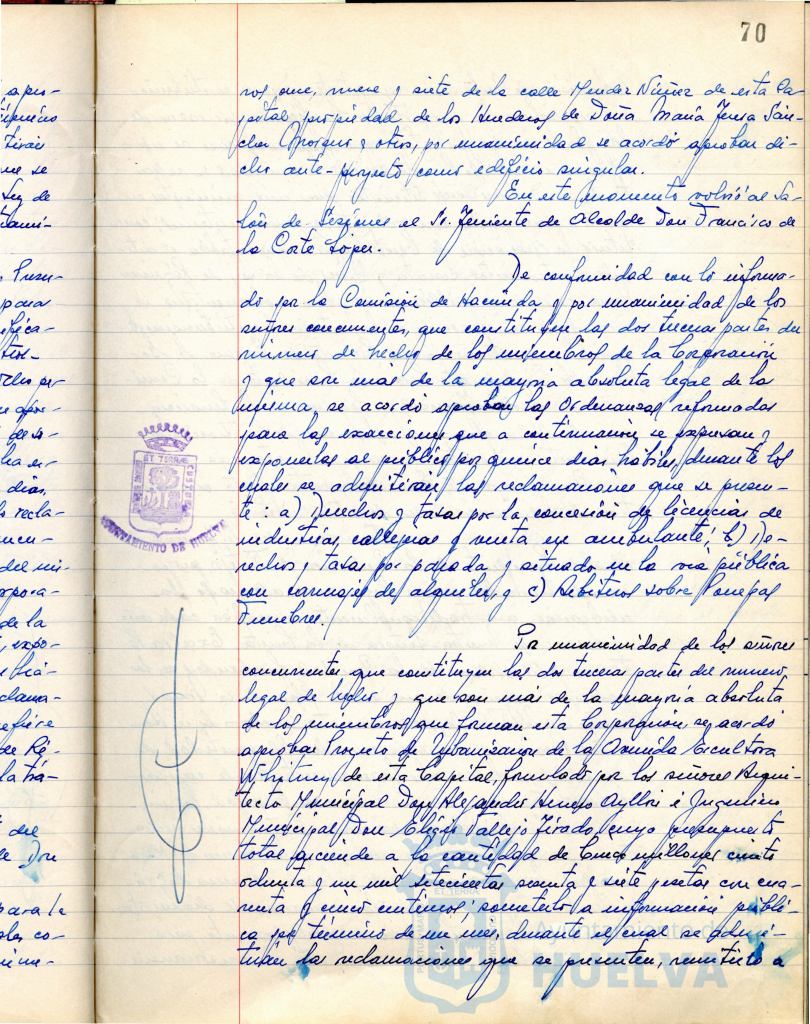 70
ros once, nueve y siete de la calle Mendez Núñez de esta Ca-
pital propiedad de los Herederos de Doña María Teresa Sán-
chez Mosquo y otros, por unanimidad se acordó aprobar di-
cho ante-proyecto como edificio singular.
En este momento volvió al Sa-
lón de Sesiones el Sr. Teniente de Alcalde Don Francisco de
la Corte López.
De conformidad con lo informa-
do por la Comisión de Hacienda y por unanimidad de los
señores concurrentes, que constituyen las dos terceras partes del
número de hecho de los miembros de la Corporación
y que son más de la mayoría absoluta legal de la
misma, se acordó aprobar las Ordenanzas reformadas
para las exacciones que a continuación se expresan y
exponerlas al público por quince dias hábiles, durante los
cuales se admitirán las reclamaciones que se presen-
te: a) Derechos y tasas por la concesión de licencias de
industrias callejeras y venta en ambulante; b) De-
rechos y tasas por parada y situado en la vía pública
con carruajes de alquiler, y c) Arbitrios sobre Pompas
Fúnebres.
Por unanimidad de los señores
concurrentes que constituyen las dos terceras partes del numero
legal de hecho y que son más de la mayoría absoluta
de los miembros que forman esta Corporación, se acordó
aprobar Proyecto de Urbanización de la Avenida Escultora
Whitney de esta Capital, formulado por los señores Arqui-
tecto Municipal Don Alejandro Herrero Ayllón é Ingeniero
Municipal Don Eligio Vallejo Tirado, cuyo presupuesto
total asciende a la cantidad de Cinco millones ciento
ochenta y un mil setecientas sesenta y siete pesetas con cua-
renta y cinco centimos; someterlo a información públi-
ca por término de un mes, durante el cual se admi-
tirán las reclamaciones que se presenten, remitirlo a
AYUNTAMIENTO DE HUELVA
Ayuntamiento de
HUELVA